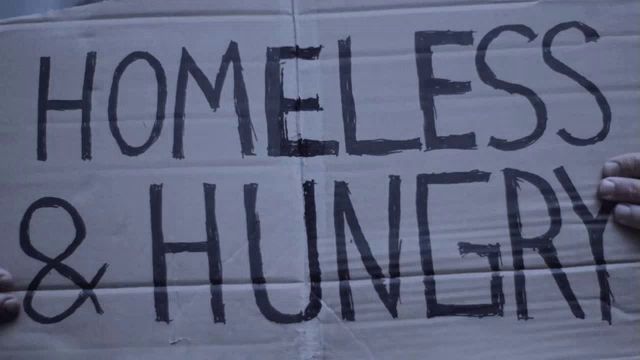 HOMELESS
& HUNGRY